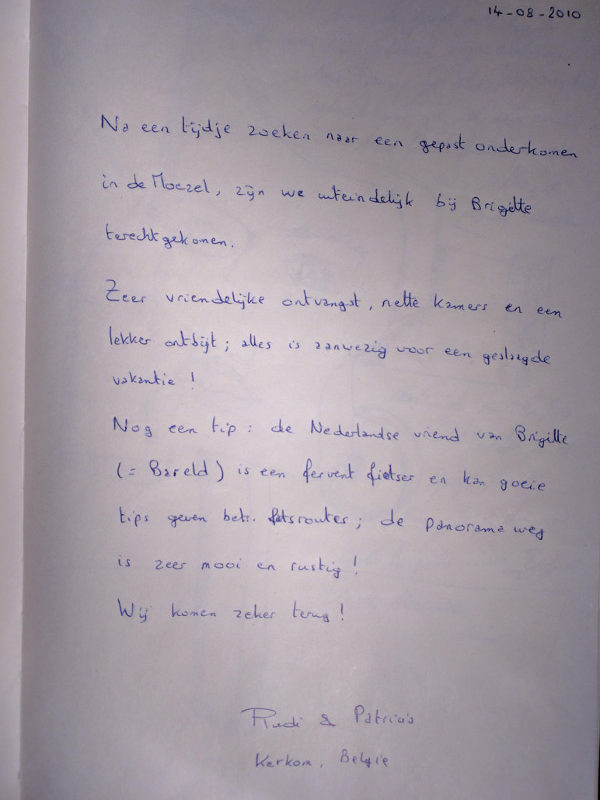 14-08-2010
Na een tijdje zoeken naar een gepast onderkomen
in de Moezel, zijn we uiteindelijk bij Brigitte
terechtgekomen.
Zeer vriendelijke ontvangst, nette kamers en een
lekker ontbijt; alles is aanwezig voor een geslaagde
vakantie !
Nog een tip : de Nederlandse vriend van Brigitte
(= Bareld) is een fervent fietser en kan goeie
tips geven betr. fietsroutes; de panorama weg
is zeer mooi en rustig !
Wij komen zeker terug !
Rudi & Patricia
Kerkom, Belgie